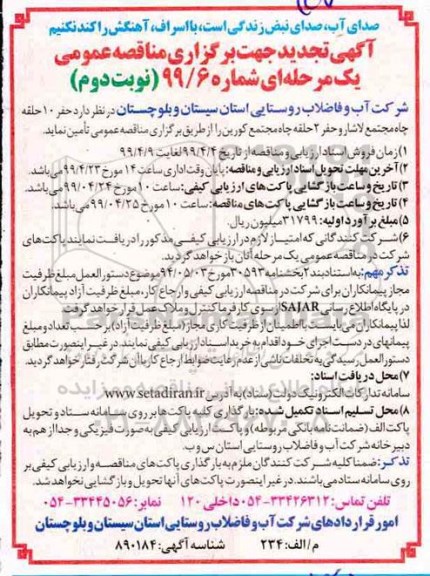 صدای آب، صدای نبض زندگی است، با اسراف، آهنگش را کند نکنیم
آگهی تجدید جهت برگزاری مناقصه عمومی
یک مرحله‌ای شماره ۹۹/۶ (نوبت دوم)
شرکت آب و فاضلاب روستایی استان سیستان و بلوچستان در نظر دارد حفر ۱۰ حلقه
چاه مجتمع لاشار و حفر ۲ حلقه چاه مجتمع کورین را از طریق برگزاری مناقصه عمومی تأمین نماید.
۱) زمان فروش اسناد ارزیابی و مناقصه از تاریخ ۹۹/۴/۴ لغایت ۹۹/۴/۹
۲) آخرین مهلت تحویل اسناد ارزیابی و مناقصه: پایان وقت اداری ساعت ۱۴ مورخ ۹۹/۴/۲۳ می‌باشد.
۳) تاریخ و ساعت بازگشایی پاکت‌های ارزیابی کیفی: ساعت ۱۰ مورخ ۹۹/۰۴/۲۴ می‌باشد.
۴) تاریخ و ساعت بازگشایی پاکت‌های مناقصه: ساعت ۱۰ مورخ ۹۹/۰۴/۲۵ می‌باشد.
۵) مبلغ برآورد اولیه: ۳۱۷۹۹ میلیون ریال.
۶) شرکت‌کنندگانی که امتیاز لازم در ارزیابی کیفی مذکور را دریافت نمایند پاکت‌های
شرکت در مناقصه عمومی یک مرحله‌ای آنان باز خواهد گردید.
تذکر مهم: به استناد بند ۲ بخشنامه ۳۰۵۹۳ مورخ ۹۴/۰۵/۰۳ موضوع دستورالعمل مبلغ ظرفیت
مجاز پیمانکاران برای شرکت در مناقصه ارزیابی کیفی و ارجاع کار، مبلغ ظرفیت آزاد پیمانکاران
در پایگاه اطلاع رسانی SAJAR از سوی کارفرما کنترل و ملاک عمل قرار خواهد گرفت
لذا پیمانکاران می‌بایست با اطمینان از ظرفیت کاری مجاز (مبلغ ظرفیت آزاد) بر حسب تعداد و مبلغ
پیمانهای در دست اجرای خود اقدام به خرید اسناد ارزیابی کیفی نمایند. در غیر اینصورت مطابق
دستورالعمل رسیدگی به تخلفات ناشی از عدم رعایت ضوابط ارجاع کار با آن شرکت رفتار خواهد گردید.
۷) محل دریافت اسناد:
سامانه تدارکات الکترونیک دولت (ستاد) به آدرس www.setadiran.ir
۸) محل تسلیم اسناد تکمیل شده: بارگذاری کلیه پاکت‌ها بر روی سامانه ستاد و تحویل
پاکت الف (ضمانت‌نامه بانکی مربوطه) و پاکت ارزیابی کیفی به صورت فیزیکی و جدا از هم به
دبیرخانه شرکت آب و فاضلاب روستایی استان س و ب.
تذکر: ضمناً کلیه شرکت کنندگان ملزم به بارگذاری پاکت‌های مناقصه و ارزیابی کیفی بر
روی سامانه ستاد می‌باشند. در غیر اینصورت پاکت‌های آنها تحویل و بازگشایی نخواهد شد.
تلفن تماس: ۳۳۴۲۶۳۱۲-۰۵۴ داخلی ۱۲۰ نمابر: ۳۳۴۴۵۰۵۶-۰۵۴
امور قراردادهای شرکت آب و فاضلاب روستایی استان سیستان و بلوچستان
م/الف: ۲۳۴ شناسه آگهی: ۸۹۰۱۸۴